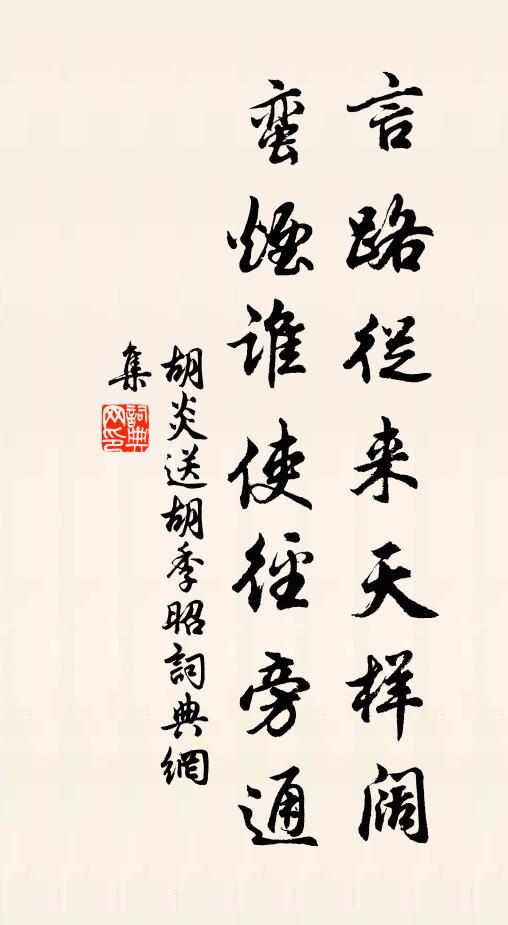 言路從来天样阔
蛮煙谁使径旁通
胡炎送胡季昭詞典網
集
詞典
网印